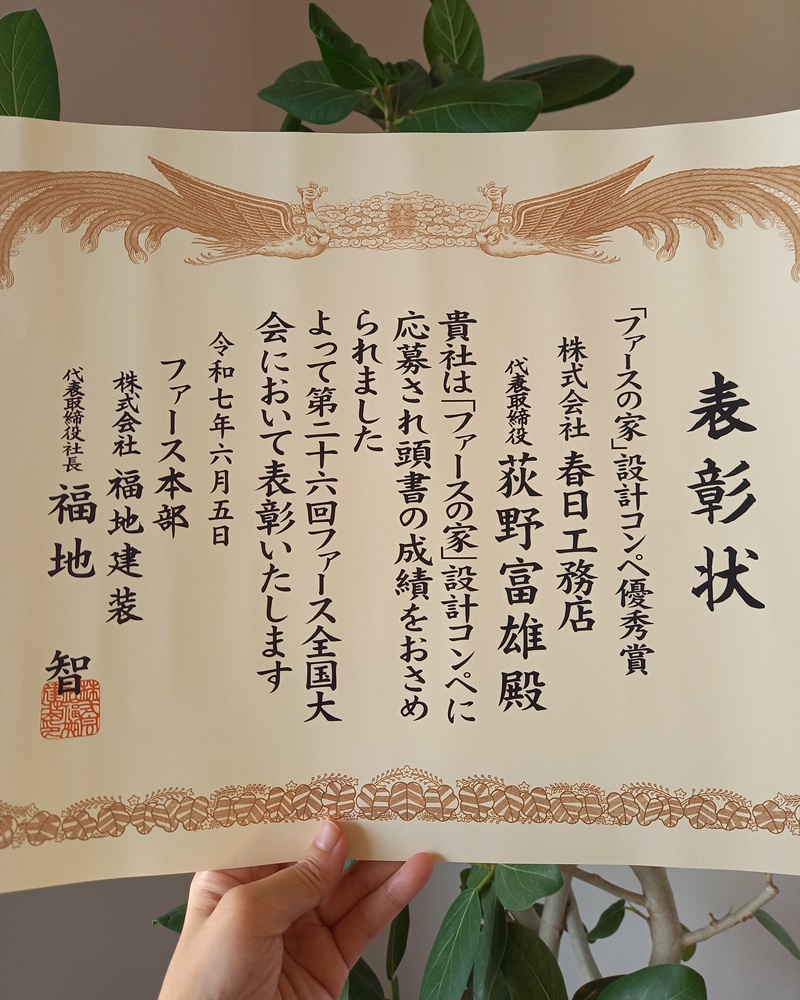 表彰状
「ファースの家」設計コンペ優秀賞
株式会社 春日工務店
代表取締役 荻野富雄殿
貴社は「ファースの家」設計コンペに
応募され頭書の成績をおさめ
られました
よって第二十六回ファース全国大
会において表彰いたします
令和七年六月五日
ファース本部
株式会社 福地建装
代表取締役社長 福地 智